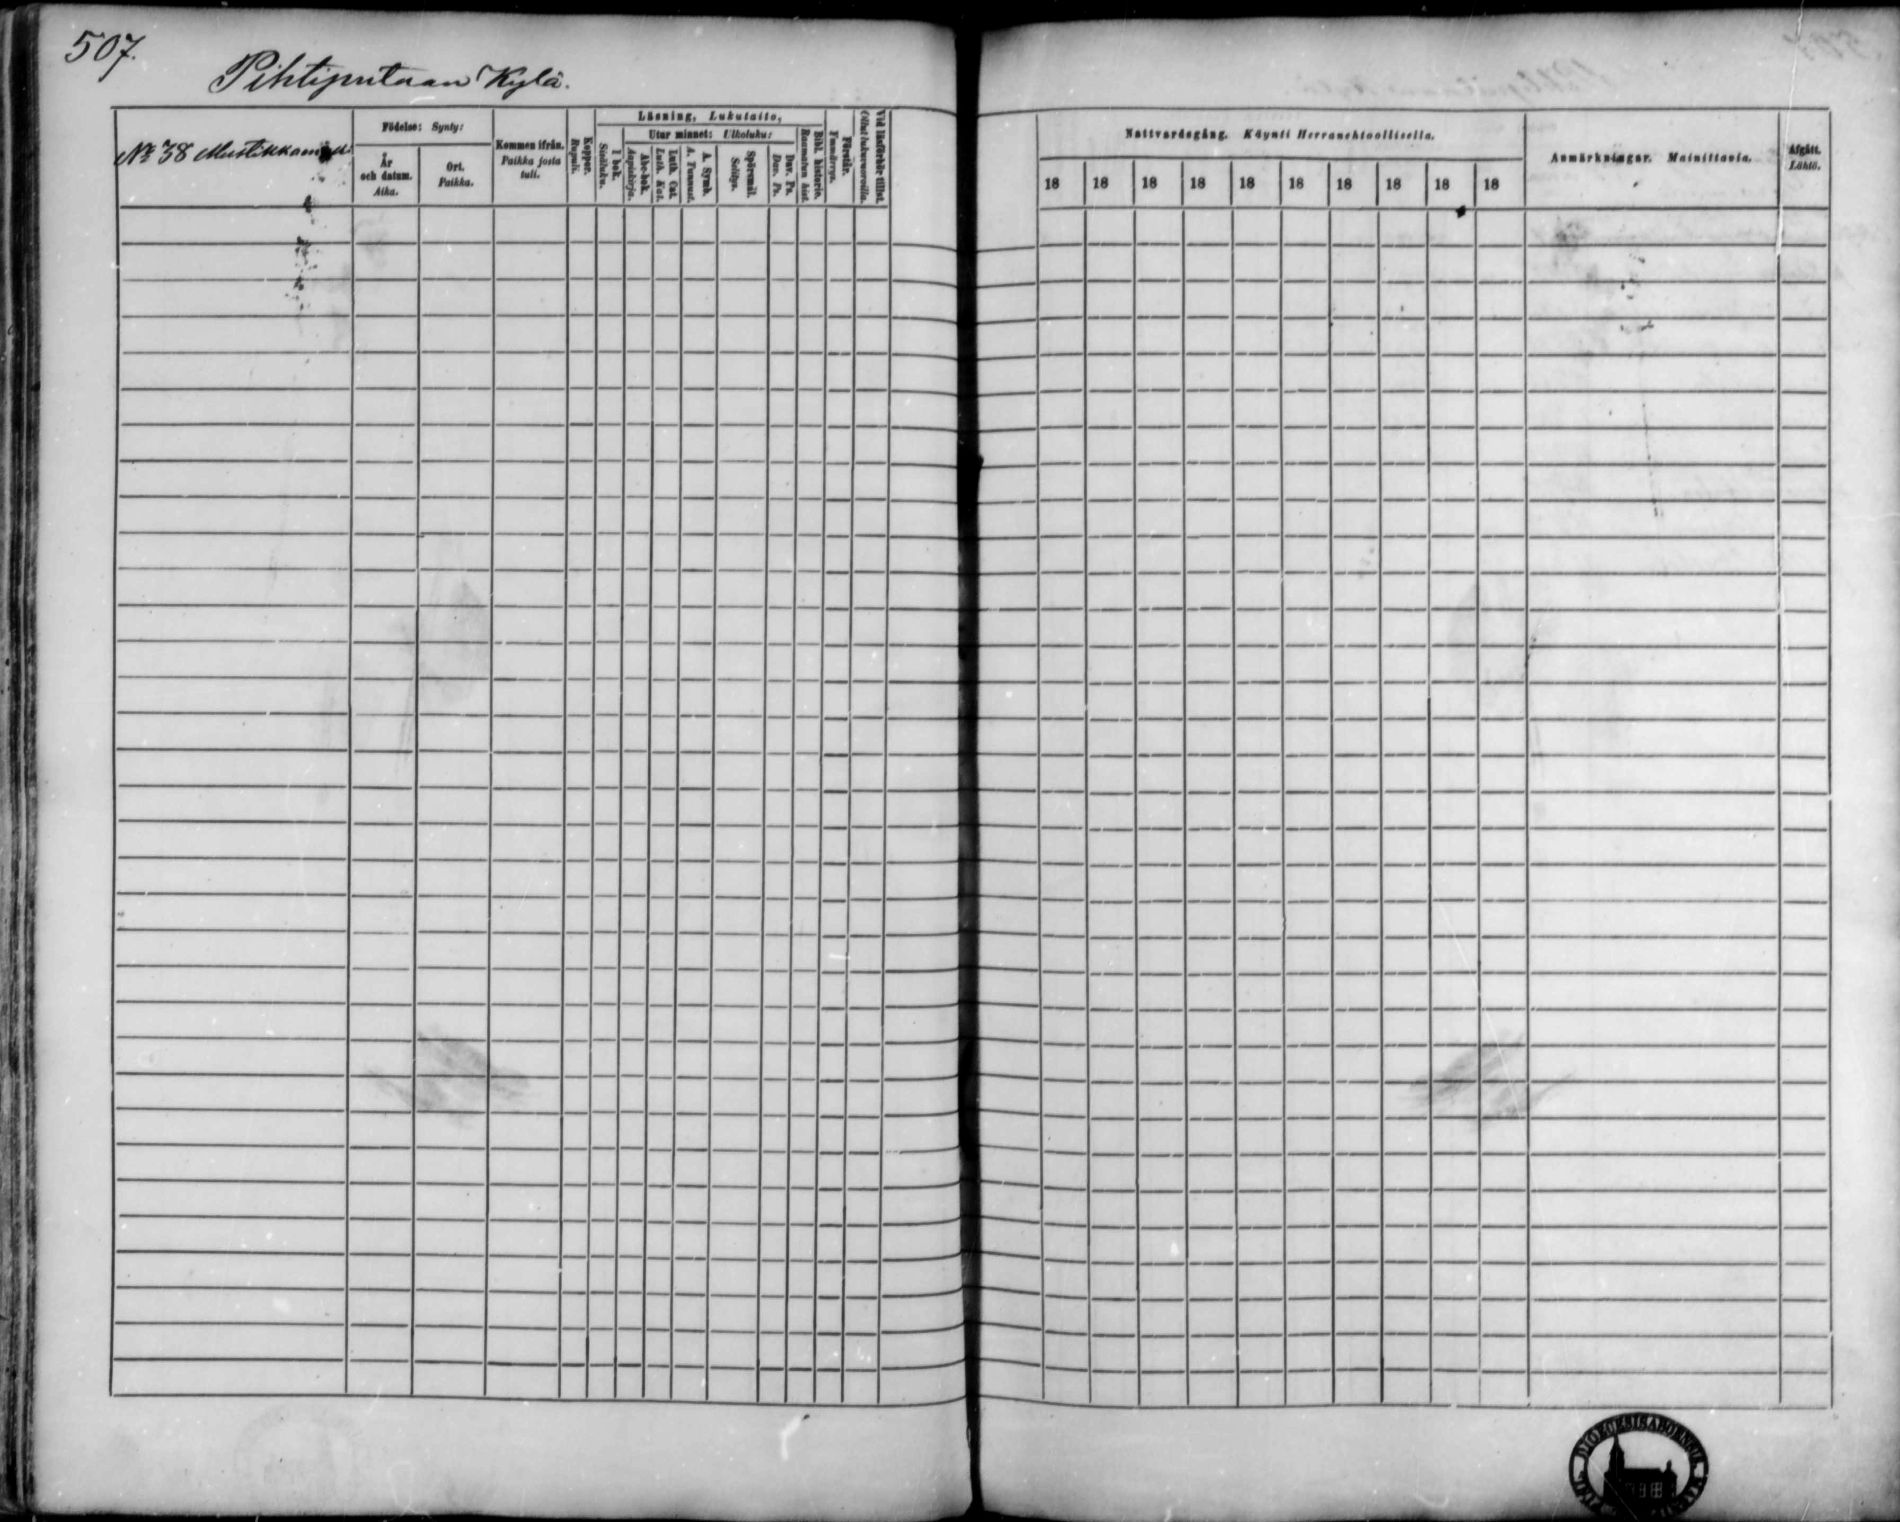 507.
Pihtiputaan Kylä.
No 38
Födelse: Synty:
År
och datum.
Aika.
Ort.
Paikka.
Kommen ifrån.
Paikka josta
tuli.
Koppor.
Rupuli.
Läsning, Lukutaito,
I bok.
Sisäluku.
Utur minnet: Ulkoluku:
Abc-bok.
Aapiskirja.
Luth. Cat.
Luth. Kat.
A. Symb.
A. Tunnust.
Spörsmål.
Selitys.
Dav. Ps.
Dav. Ps.
Bibl. historie.
Raamatun hist.
Förstår.
Ymmärrys.
Vid läsförhör tillst.
Ollut lukuvuoroilla.
Nattvardsgång. Käynti Herranehtoollisella.
18 18 18 18 18 18 18 18 18 18
Anmärkningar. Mainittavia.
Afgått.
Lähtö.